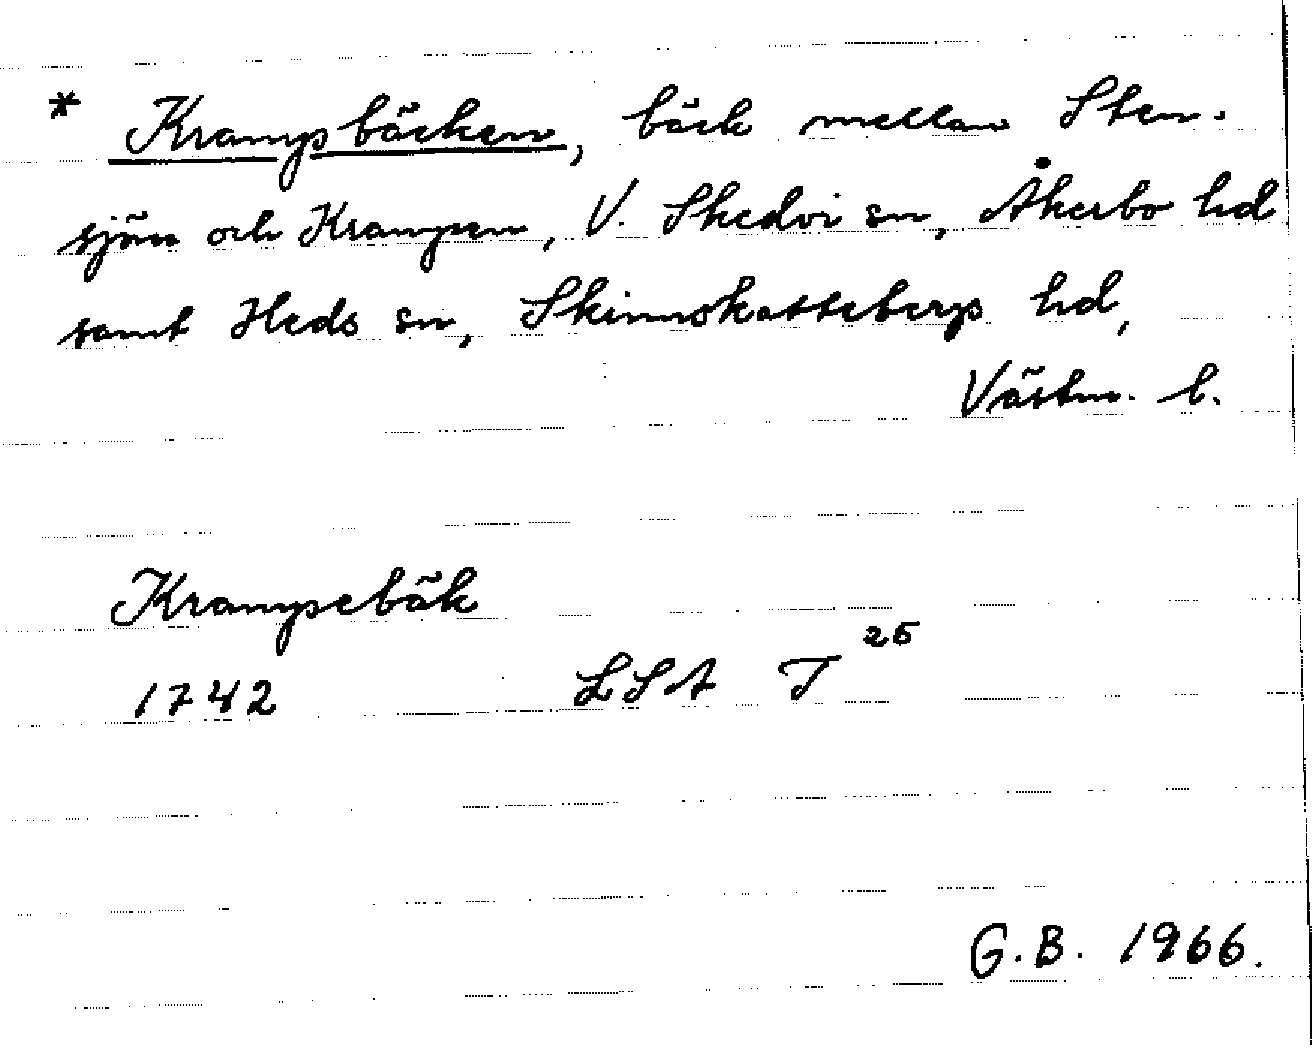 * Krampsbäcken, bäck mellan Sten-
sjön och Krampen, V. Skedvi sn, Åkerbo hd
samt Heds sn, Skinnskattebergs hd,
Västm. l.
Krampebäk
1742 LSA T 25
G.B. 1966.